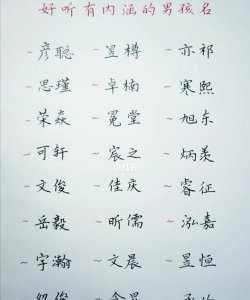 好听有内涵的男孩名
~彦聪 ~昱樽 ~亦祁
~思瑾 ~卓楠 ~寒熙
~荣焱 ~冕堂 ~旭东
~可轩 ~宸之 ~炳羡
~文俊 ~佳庆 ~睿征
~岳毅 ~昕儒 ~泓嘉
~宇瀚 ~文晨 ~昱恒